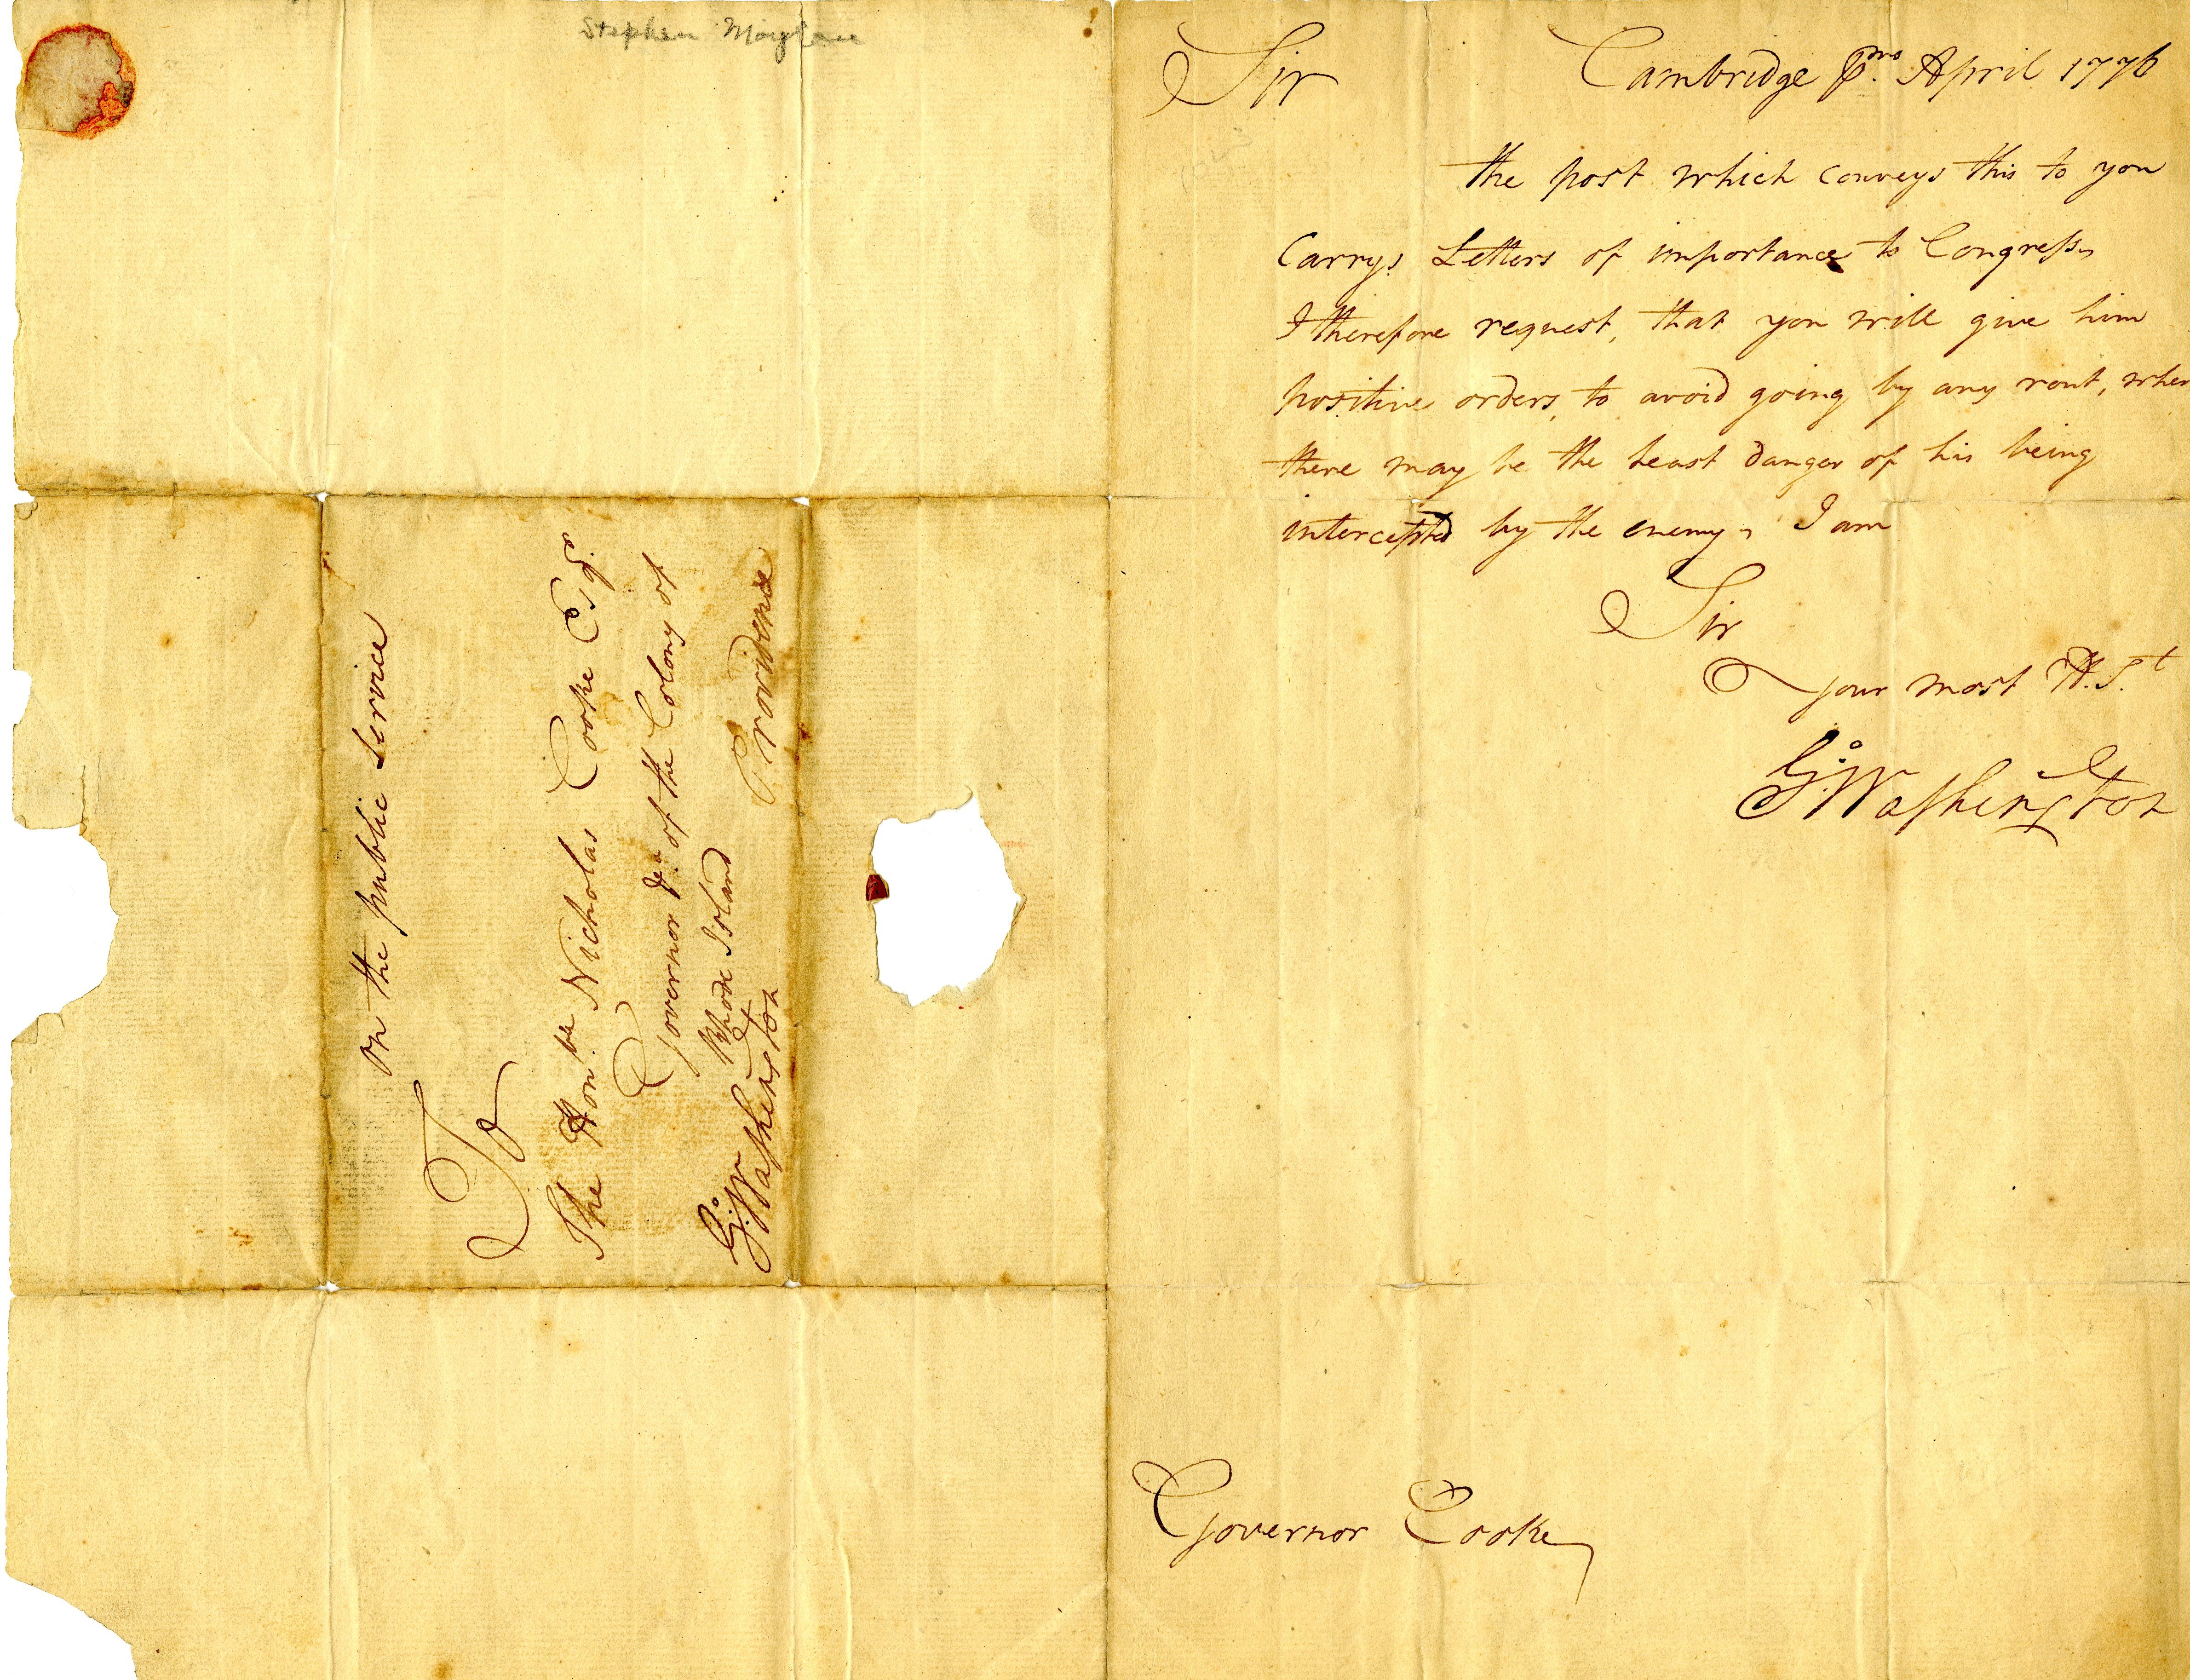 Stephen Moylan
on the public Service
To
The Hon.ble Nicholas Cooke Esqr.
Governor &ca of the Colony of
Rhode Island
Providence
Go: Washington
Sir
Cambridge pmo. April 1776
the post which conveys this to you
Carrys Letters of importance to Congress,
I therefore request, that you will give him
positive orders, to avoid going by any rout, wher
there may be the least danger of his being
intercepted by the enemy, I am
Sir
Your most H. St
Go: Washington
Governor Cooke